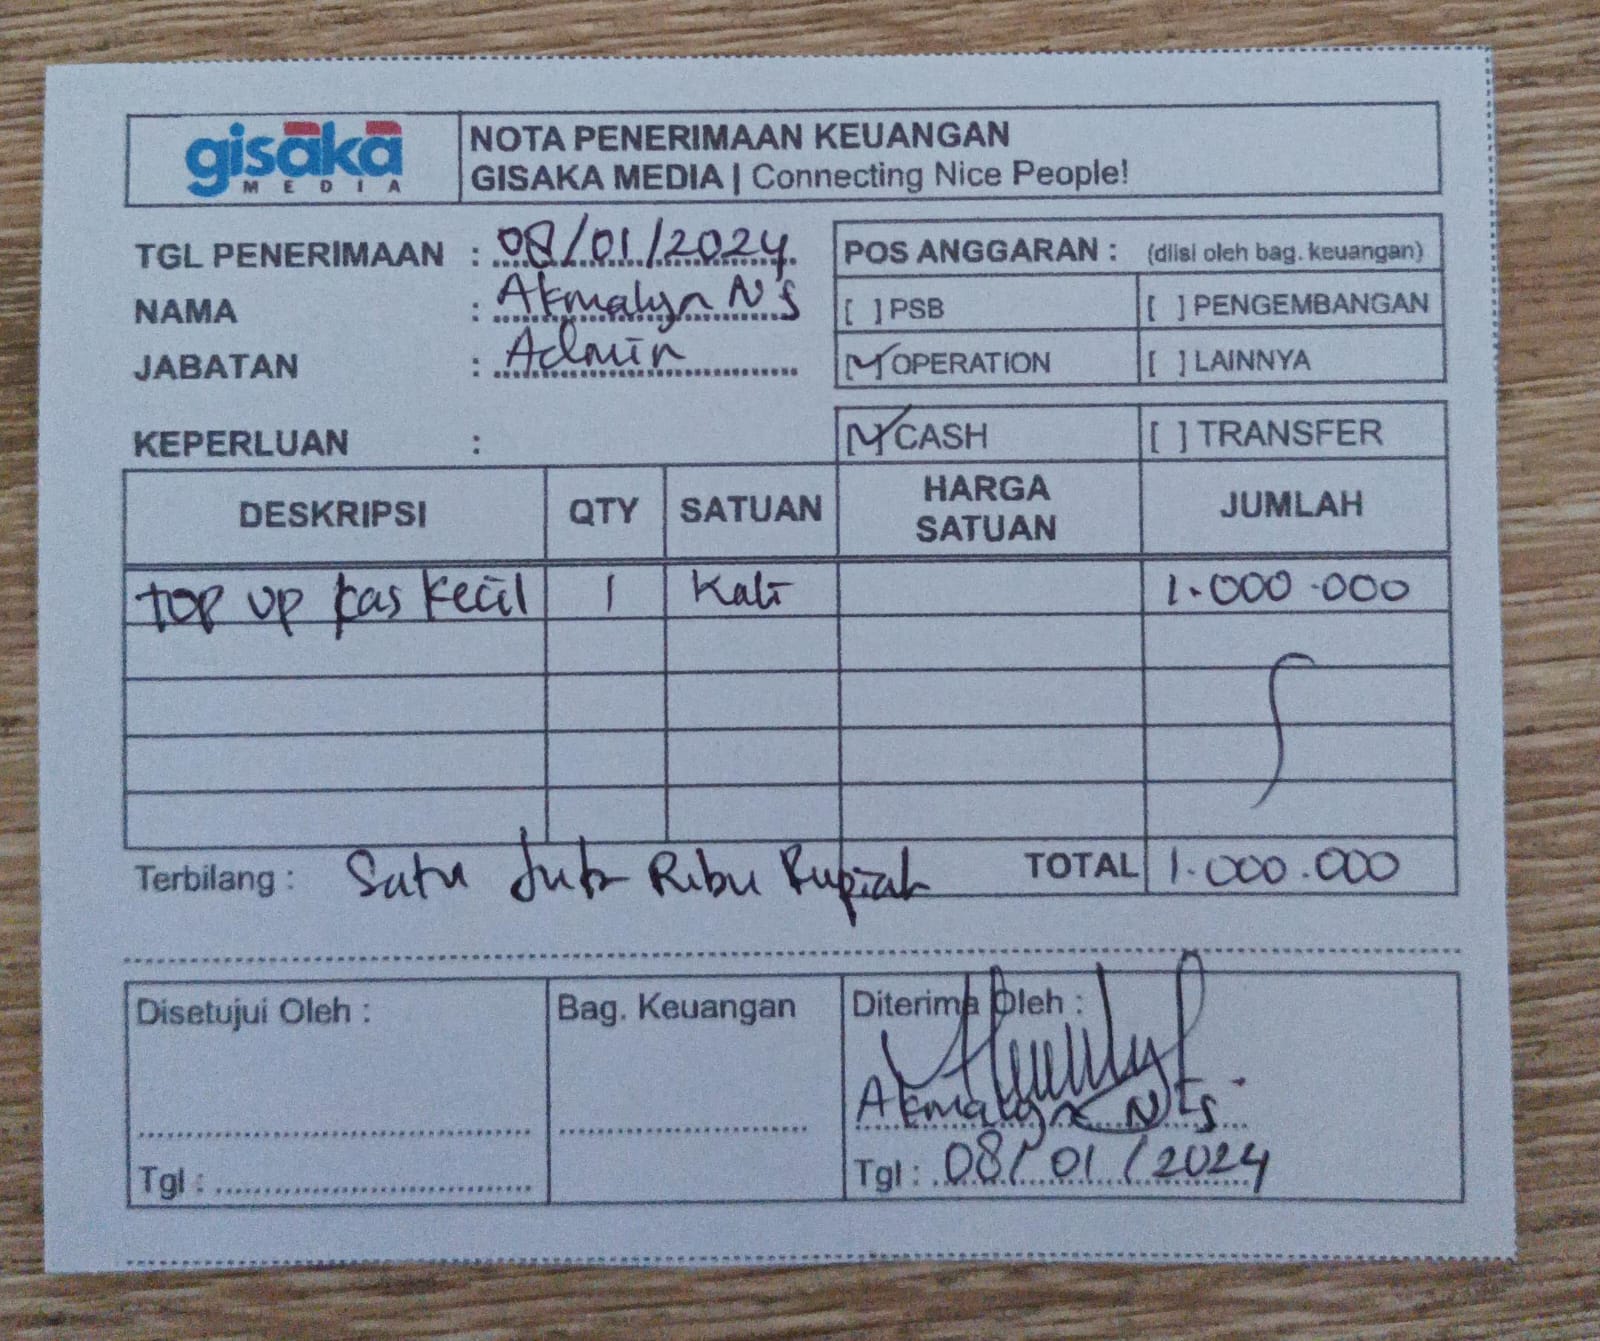 gisaka
MEDIA
NOTA PENERIMAAN KEUANGAN
GISAKA MEDIA | Connecting Nice People!
TGL PENERIMAAN : 08/01/2024
NAMA : Akmalyn N's
JABATAN : Admin
POS ANGGARAN : (diisi oleh bag. keuangan)
[ ] PSB [ ] PENGEMBANGAN
[✓] OPERATION [ ] LAINNYA
KEPERLUAN : [✓] CASH [ ] TRANSFER
DESKRIPSI QTY SATUAN HARGA SATUAN JUMLAH
top up kas kecil 1 Kali 1.000.000
Terbilang : Satu Juta Ribu Rupiah TOTAL 1.000.000
Disetujui Oleh : Bag. Keuangan Diterima Oleh :
Tgl : Tgl : 08/01/2024